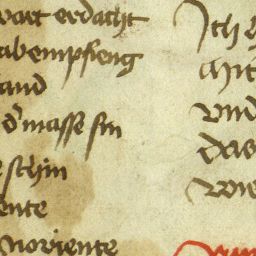 wart erdacht
ab empfieng
and
d' masse sin
schin
ente
noriente
Ich
mit
vnd
das
wie